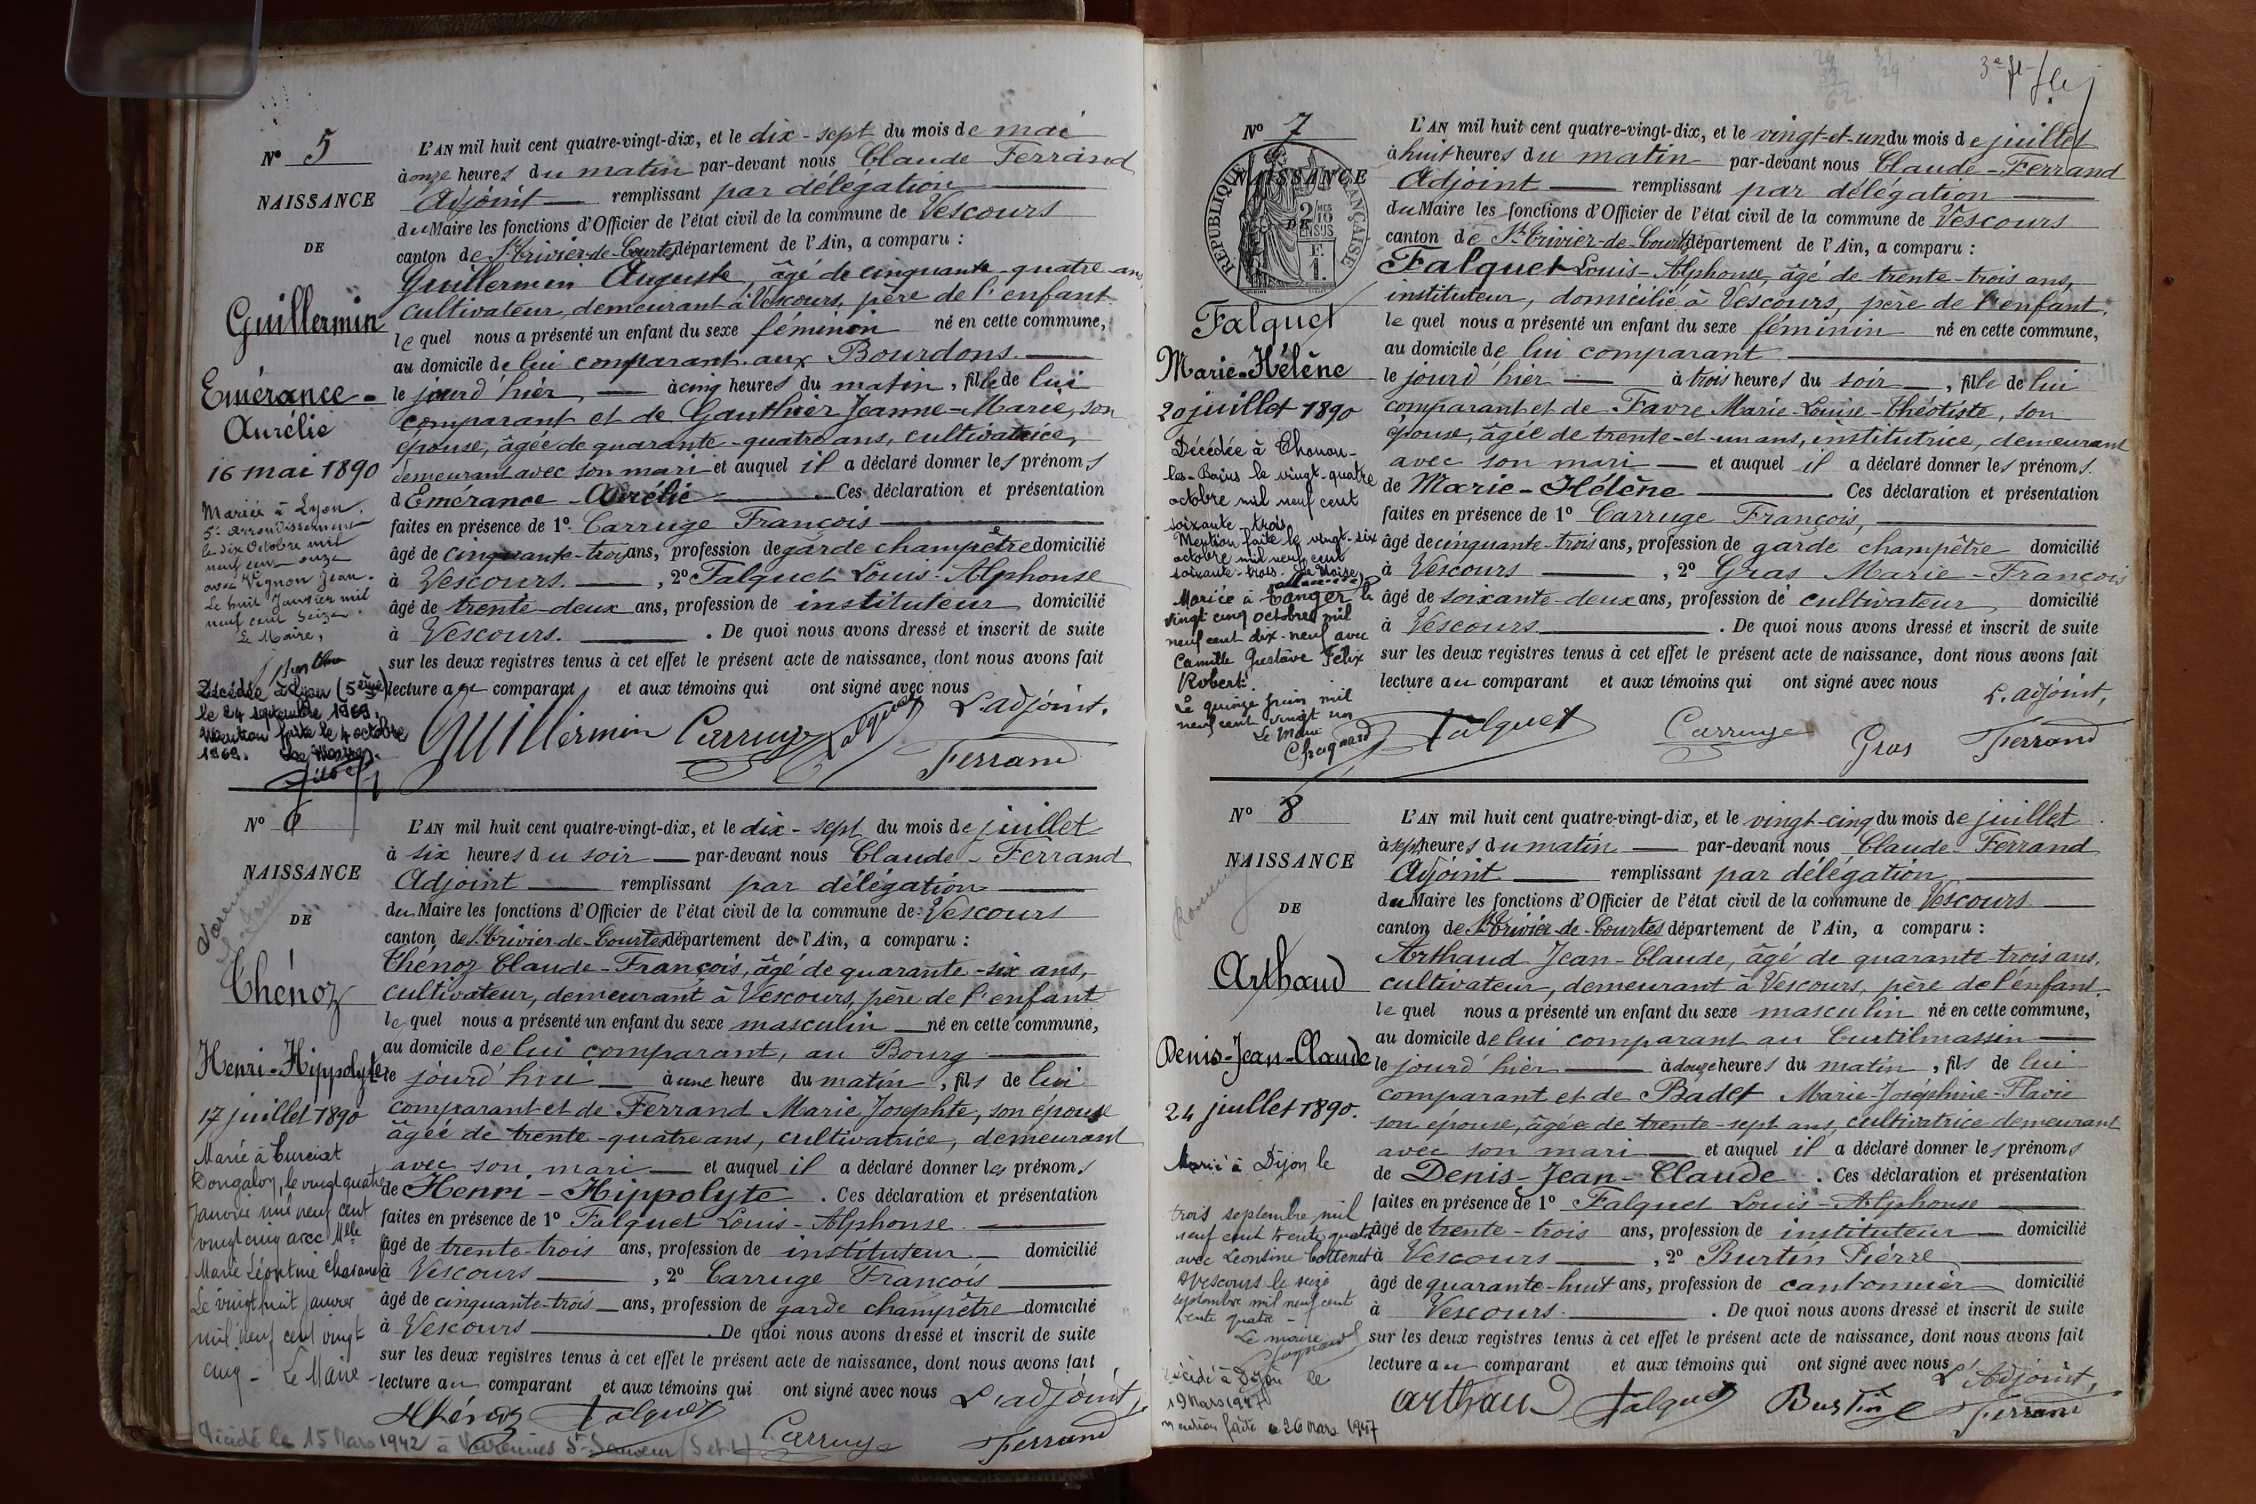 N° 5
NAISSANCE
DE
Guillermin
Emérance-
Aurélie
16 mai 1890
Mariée à Lyon
5e arrondissement
le dix Octobre mil
neuf cent onze
avec Vignon Jean.
Le huit Janvier mil
neuf cent seize.
Le Maire,
Décédée à Lyon (5ème)
le 24 septembre 1969.
Mention faite le 4 octobre
1969. Le Maire,
L'AN mil huit cent quatre-vingt-dix, et le dix-sept du mois de mai
à onze heures du matin par-devant nous Claude Ferrand
Adjoint remplissant par délégation
du Maire les fonctions d'Officier de l'état civil de la commune de Vescours
canton de St Trivier-de-Courtes département de l'Ain, a comparu :
Guillermin Auguste, âgé de cinquante-quatre ans
cultivateur, demeurant à Vescours, père de l'enfant.
lequel nous a présenté un enfant du sexe féminin né en cette commune,
au domicile de lui comparant aux Bourdons.
le jourd'hier, à cinq heures du matin, fille de lui
comparant et de Gauthier Jeanne-Marie, son
épouse, âgée de quarante-quatre ans, cultivatrice,
demeurant avec son mari et auquel il a déclaré donner les prénoms
d'Emérance-Aurélie Ces déclaration et présentation
faites en présence de 1° Carruge François
âgé de cinquante-trois ans, profession de garde champêtre domicilié
à Vescours. , 2° Falquet Louis-Alphonse
âgé de trente-deux ans, profession de instituteur domicilié
à Vescours. . De quoi nous avons dressé et inscrit de suite
sur les deux registres tenus à cet effet le présent acte de naissance, dont nous avons fait
lecture au comparant et aux témoins qui ont signé avec nous
L'adjoint.
Guillermin Carruge Falquet Ferrand
N° 6
NAISSANCE
DE
Thénoz
Henri-Hippolyte
17 juillet 1890
Marié à Curciat
Dongalon, le vingt quatre
Janvier mil neuf cent
vingt cinq avec Mlle
Marie Léontine
Le vingt huit janvier
mil neuf cent vingt
cinq - Le Maire
L'AN mil huit cent quatre-vingt-dix, et le dix-sept du mois de juillet
à six heures du soir par-devant nous Claude-Ferrand
Adjoint remplissant par délégation
du Maire les fonctions d'Officier de l'état civil de la commune de Vescours
canton de St Trivier-de-Courtes département de l'Ain, a comparu :
Thénoz Claude-François, âgé de quarante-six ans,
cultivateur, demeurant à Vescours, père de l'enfant
lequel nous a présenté un enfant du sexe masculin né en cette commune,
au domicile de lui comparant, au Bourg
le jourd'hui à une heure du matin, fils de lui
comparant et de Ferrand Marie Josephte, son épouse
âgée de trente-quatre ans, cultivatrice, demeurant
avec son mari et auquel il a déclaré donner les prénoms
de Henri-Hippolyte. Ces déclaration et présentation
faites en présence de 1° Falquet Louis-Alphonse
âgé de trente-trois ans, profession de instituteur domicilié
à Vescours , 2° Carruge François
âgé de cinquante-trois ans, profession de garde champêtre domicilié
à Vescours De quoi nous avons dressé et inscrit de suite
sur les deux registres tenus à cet effet le présent acte de naissance, dont nous avons fait
lecture au comparant et aux témoins qui ont signé avec nous L'adjoint,
Thénoz Falquet Carruge Ferrand
Décédé le 15 Mars 1942 à Varennes St-Sauveur
3e
N° 7
RÉPUBLIQUE FRANÇAISE
NAISSANCE
DE
Falquet
Marie-Hélène
20 juillet 1890
Décédée à Thonon-
les-Bains le vingt-quatre
octobre mil neuf cent
soixante trois
Mention faite le vingt-six
octobre mil neuf cent
soixante-trois. Le Maire,
Mariée à Tanger le
vingt cinq octobre mil
neuf cent dix-neuf avec
Camille Gustave Félix
Robert.
Le quinze juin mil
neuf cent vingt un
Le Maire
L'AN mil huit cent quatre-vingt-dix, et le vingt-et-un du mois de juillet
à huit heures du matin par-devant nous Claude-Ferrand
Adjoint remplissant par délégation
du Maire les fonctions d'Officier de l'état civil de la commune de Vescours
canton de St Trivier-de-Courtes département de l'Ain, a comparu :
Falquet Louis-Alphonse, âgé de trente-trois ans,
instituteur, domicilié à Vescours, père de l'enfant.
lequel nous a présenté un enfant du sexe féminin né en cette commune,
au domicile de lui comparant
le jourd'hier à trois heures du soir, fille de lui
comparant et de Favre Marie-Louise-Théotiste, son
épouse, âgée de trente-et-un ans, institutrice, demeurant
avec son mari et auquel il a déclaré donner les prénoms
de Marie-Hélène Ces déclaration et présentation
faites en présence de 1° Carruge François,
âgé de cinquante-trois ans, profession de garde champêtre domicilié
à Vescours , 2° Gras Marie-François
âgé de soixante-deux ans, profession de cultivateur domicilié
à Vescours . De quoi nous avons dressé et inscrit de suite
sur les deux registres tenus à cet effet le présent acte de naissance, dont nous avons fait
lecture au comparant et aux témoins qui ont signé avec nous
L'adjoint,
Falquet Carruge Gras Ferrand
N° 8
NAISSANCE
DE
Arthaud
Denis-Jean-Claude
24 juillet 1890.
Marié à Dijon le
trois septembre mil
neuf cent trente quatre
avec Léontine Cottenet
A Vescours le seize
septembre mil neuf cent
trente quatre -
Le maire
Décédé à Dijon le
19 Mars 1947
mention faite le 26 mars 1947
L'AN mil huit cent quatre-vingt-dix, et le vingt-cinq du mois de juillet
à sept heures du matin par-devant nous Claude Ferrand
Adjoint remplissant par délégation
du Maire les fonctions d'Officier de l'état civil de la commune de Vescours
canton de St Trivier-de-Courtes département de l'Ain, a comparu :
Arthaud Jean-Claude, âgé de quarante-trois ans,
cultivateur, demeurant à Vescours, père de l'enfant.
lequel nous a présenté un enfant du sexe masculin né en cette commune,
au domicile de lui comparant au Curtilmassin
le jourd'hier à douze heures du matin, fils de lui
comparant et de Badet Marie-Joséphine-Flavie
son épouse, âgée de trente-sept ans, cultivatrice demeurant
avec son mari et auquel il a déclaré donner les prénoms
de Denis-Jean-Claude. Ces déclaration et présentation
faites en présence de 1° Falquet Louis-Alphonse
âgé de trente-trois ans, profession de instituteur domicilié
à Vescours , 2° Burtin Pierre
âgé de quarante-huit ans, profession de cantonnier domicilié
à Vescours. . De quoi nous avons dressé et inscrit de suite
sur les deux registres tenus à cet effet le présent acte de naissance, dont nous avons fait
lecture au comparant et aux témoins qui ont signé avec nous
L'Adjoint,
Arthaud Falquet Burtin Ferrand